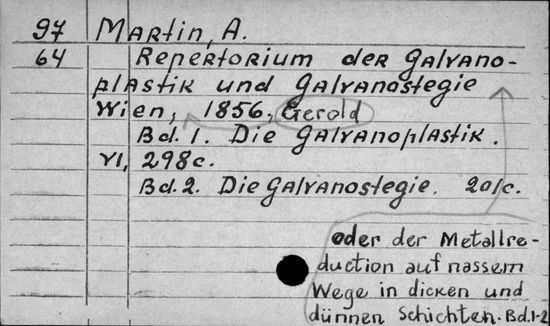 97 Martin, A.
64 Repertorium der Galvano-
plastik und Galvanostegie
Wien, 1856, Gerold
Bd. 1. Die Galvanoplastik.
VI, 298c.
Bd. 2. Die Galvanostegie. 201c.
oder der Metallre-
duction auf nassem
Wege in dicken und
dünnen Schichten. Bd. 1-2